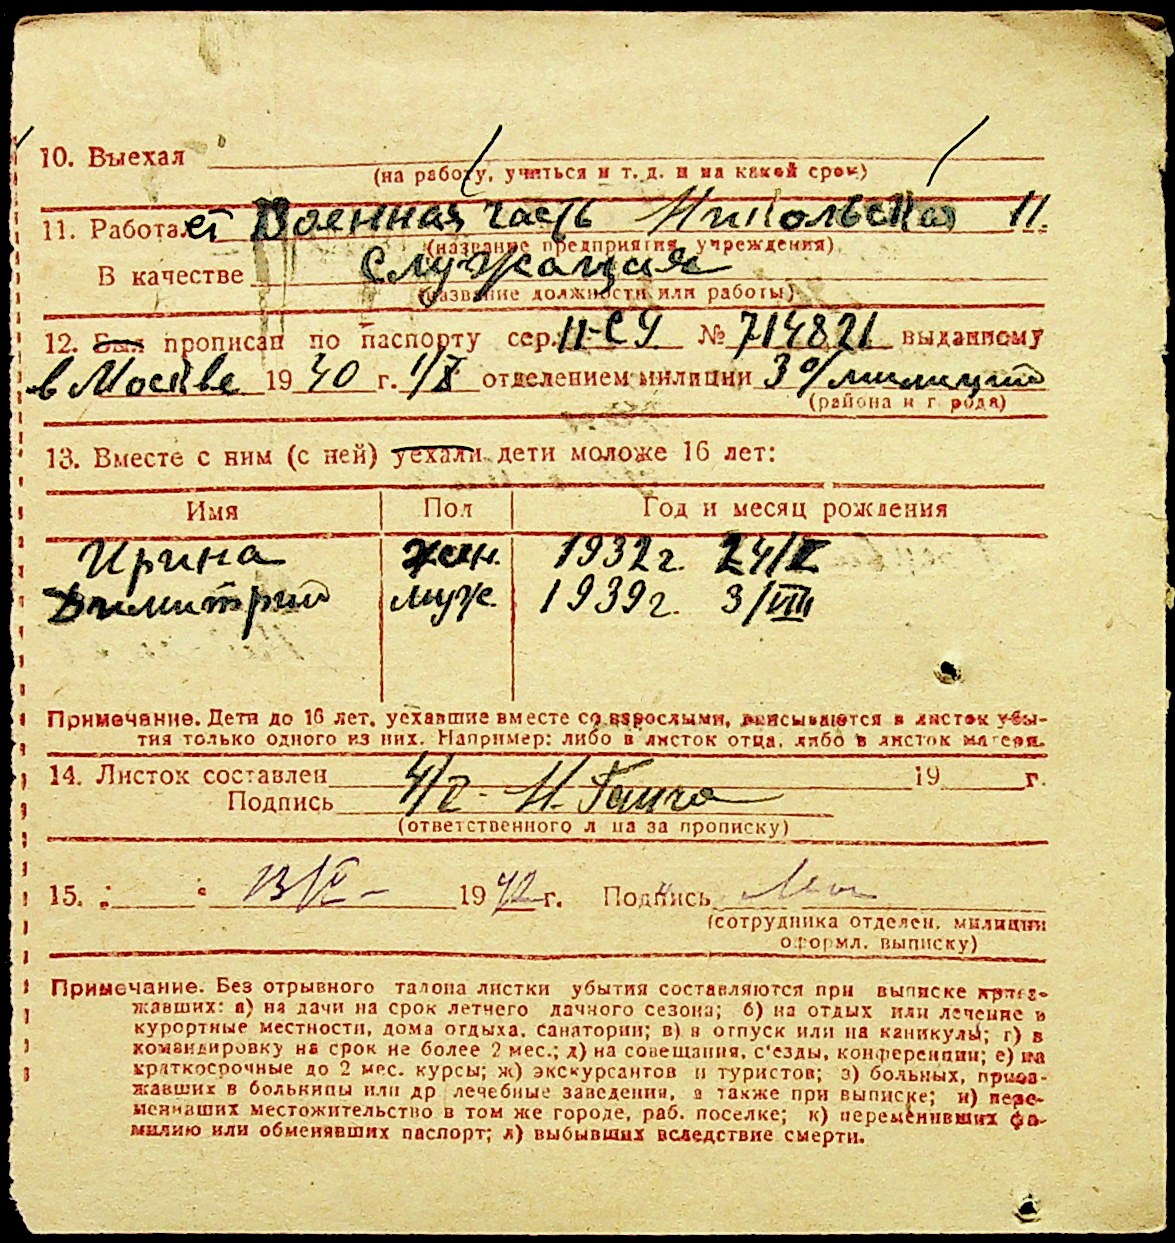 10. Выехал
(на работу, учиться и т. д. и на какой срок)
11. Работает Военная часть Никольская 11.
(название предприятия, учреждения)
В качестве служащая
(название должности или работы)
12. Был прописан по паспорту сер. II-СУ № 714821 выданному
в Москве 1940 г. 1/X отделением милиции 3 о/милиции
(района и города)
13. Вместе с ним (с ней) уехали дети моложе 16 лет:
Имя Пол Год и месяц рождения
Ирина жен. 1932 г. 24/II
Димитрий муж. 1939 г. 3/VIII
Примечание. Дети до 16 лет, уехавшие вместе со взрослыми, вписываются в листок убы-
тия только одного из них. Например: либо в листок отца, либо в листок матери.
14. Листок составлен 4/V - 19 г.
Подпись
(ответственного лица за прописку)
15. 1942 г. Подпись
(сотрудника отделен. милиции
оформл. выписку)
Примечание. Без отрывного талона листки убытия составляются при выписке приез-
жавших: а) на дачи на срок летнего дачного сезона; б) на отдых или лечение в
курортные местности, дома отдыха, санатории; в) в отпуск или на каникулы; г) в
командировку на срок не более 2 мес.; д) на совещания, с'езды, конференции; е) на
краткосрочные до 2 мес. курсы; ж) экскурсантов и туристов; з) больных, приез-
жавших в больницы или др лечебные заведения, а также при выписке; и) пере-
менивших местожительство в том же городе, раб. поселке; к) переменивших фа-
милию или обменявших паспорт; л) выбывших вследствие смерти.